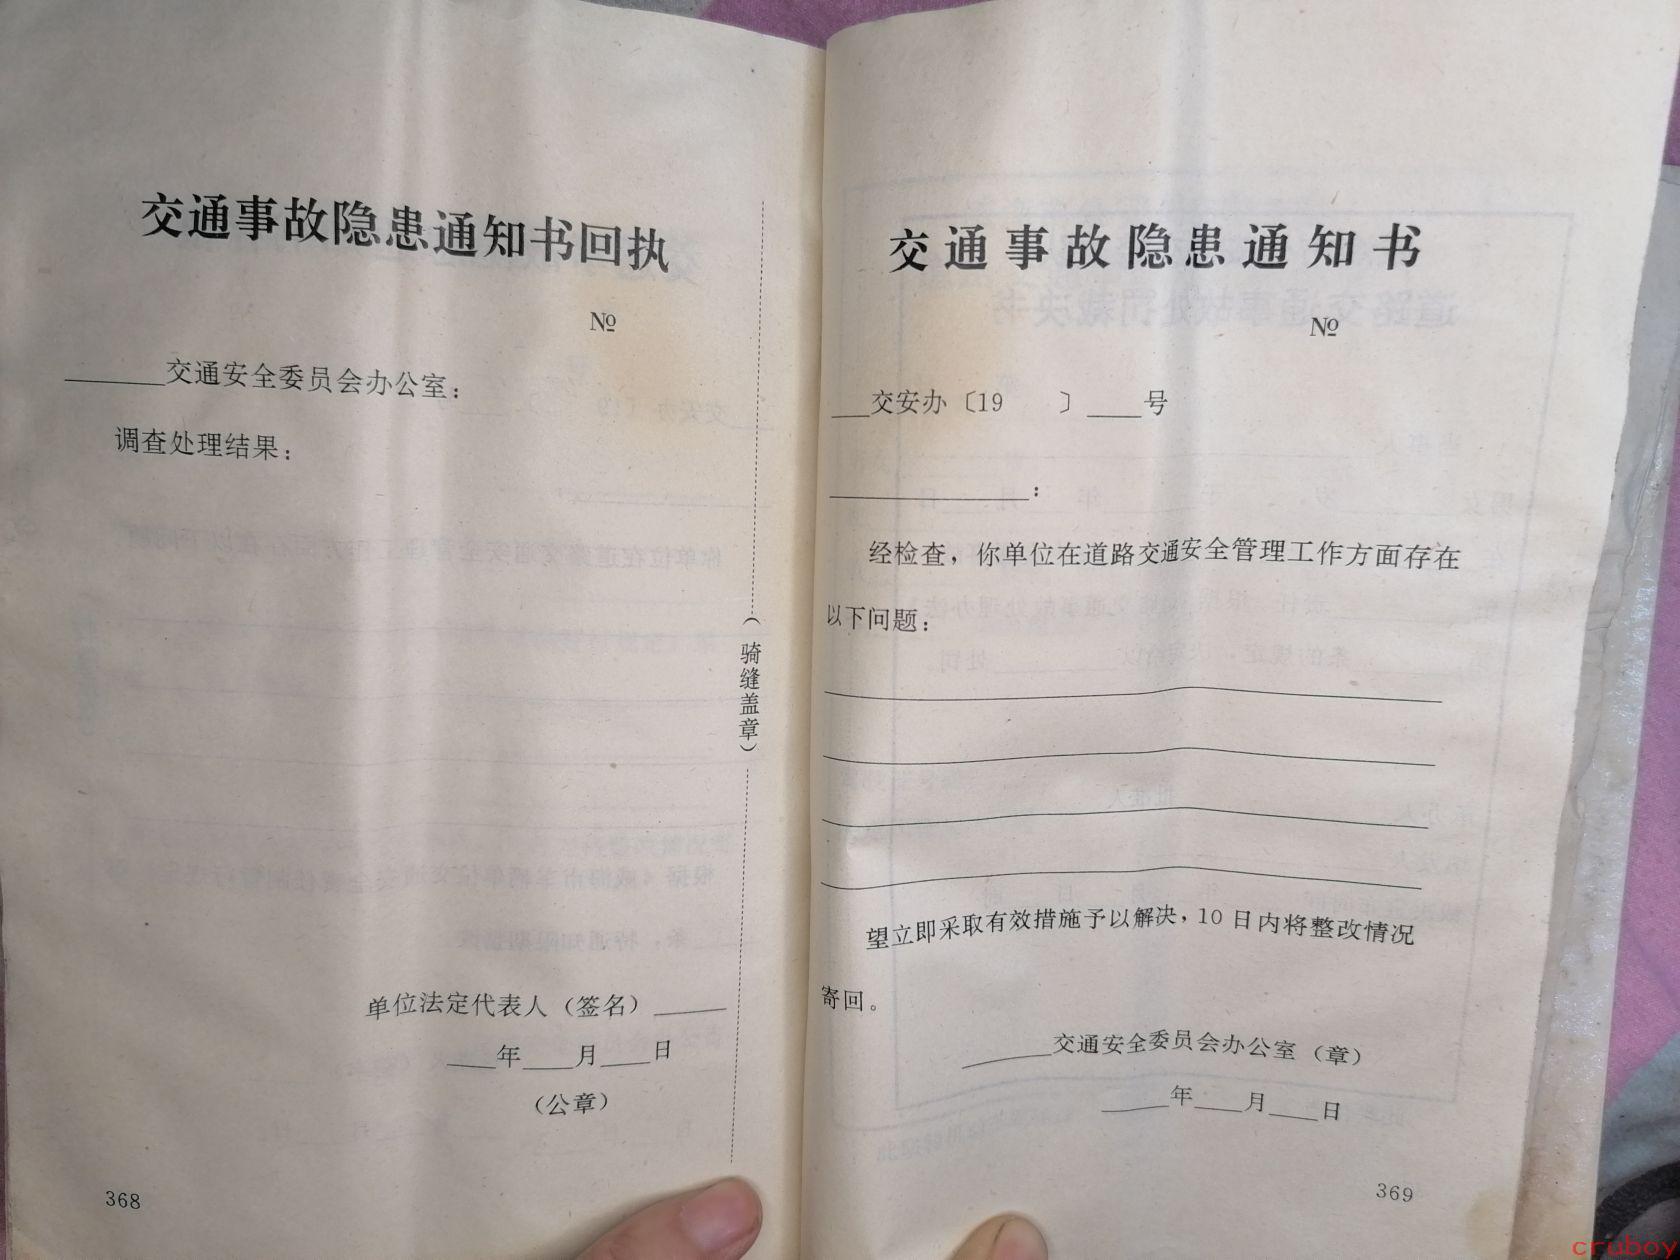 交通事故隐患通知书回执
№
______交通安全委员会办公室：
调查处理结果：
（骑缝盖章）
单位法定代表人（签名）_____
___年___月___日
（公章）
368
交通事故隐患通知书
№
__交安办〔19　　〕___号
____________：
经检查，你单位在道路交通安全管理工作方面存在
以下问题：
望立即采取有效措施予以解决，10日内将整改情况
寄回。
_____交通安全委员会办公室（章）
____年___月___日
369
cruboy